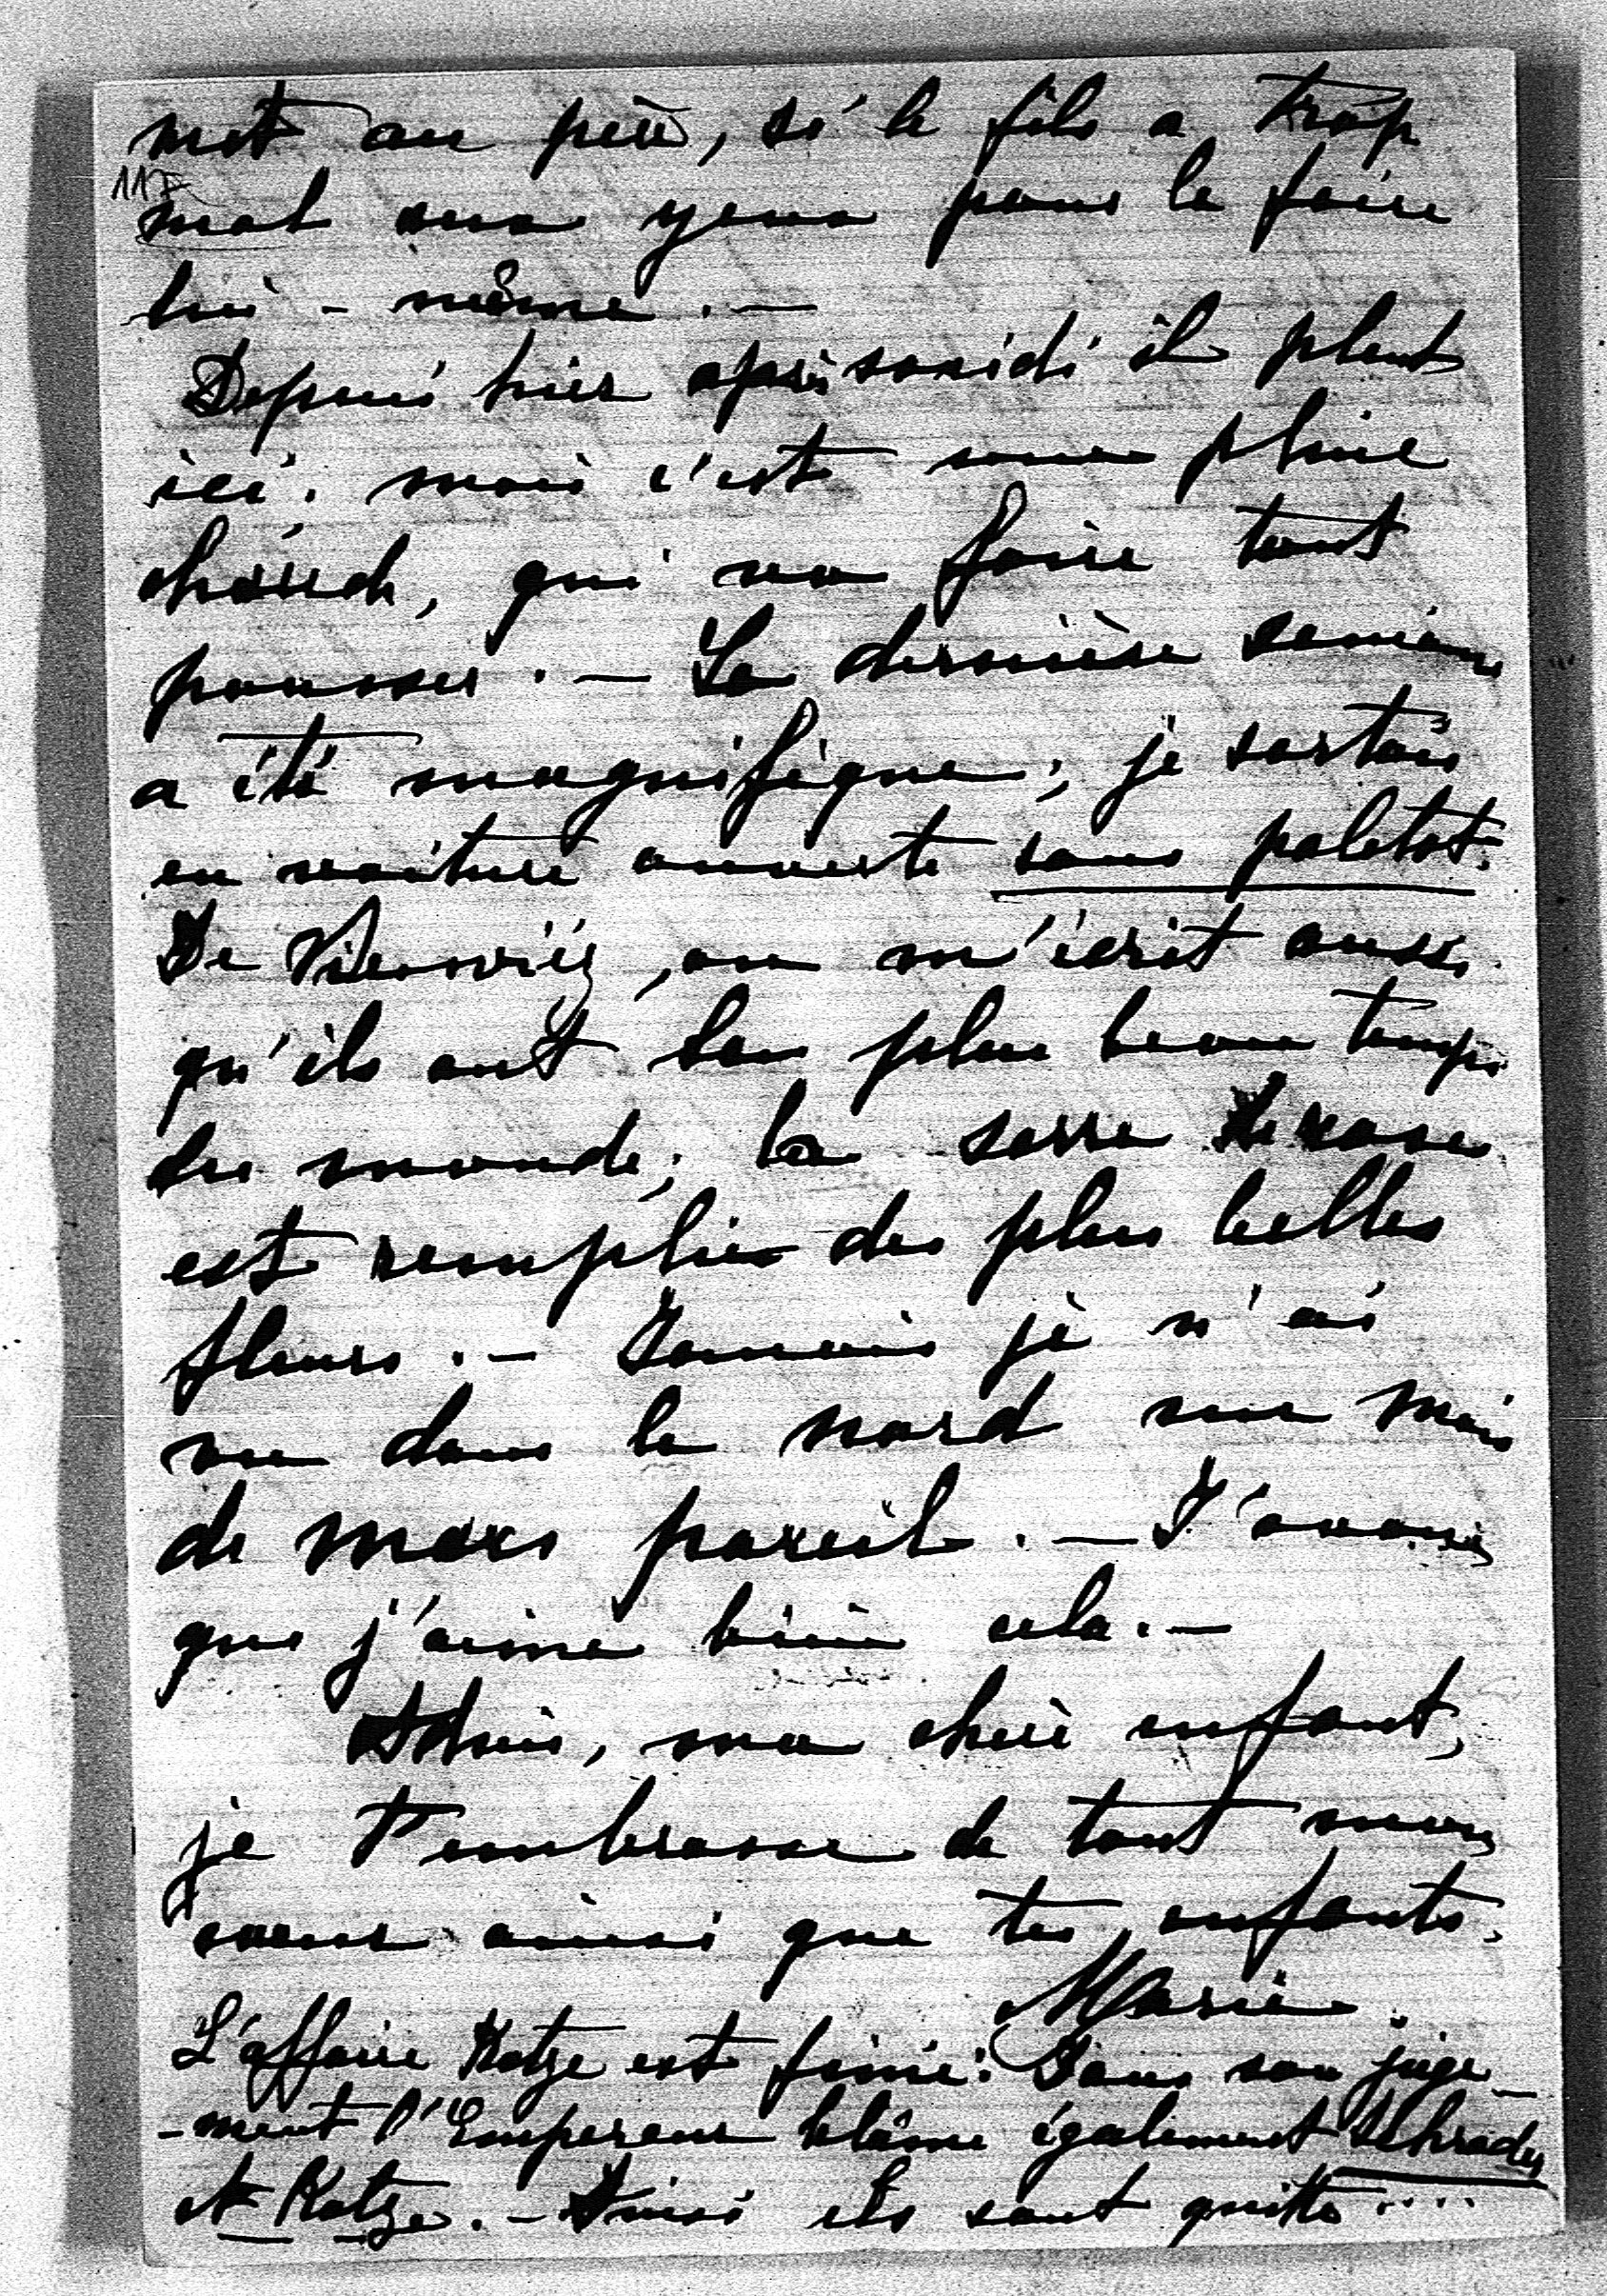 mot au père, si le fils a trop
117
mal aux yeux pour le faire
lui-même. —
Depuis hier après midi il pleut
ici; mais c'est une pluie
chaude, qui va faire tout
pousser. — La dernière semaine
a été magnifique; je sortais
en voiture ouverte sans paletot.
De on m'écrit aussi
qu'ils ont le plus beau temps
du monde; la serre de roses
est remplie des plus belles
fleurs. — Jamais je n'ai
vu dans le nord un mois
de mars pareil. — J'avoue
que j'aime bien cela. —
Adieu, ma chère enfant,
je t'embrasse de tout mon
coeur ainsi que tes enfants.
Marie.
L'affaire Kotze est finie. Dans son juge-
-ment l'Empereur blâme également Schrader
et Kotze. — Ainsi ils sont quitte....